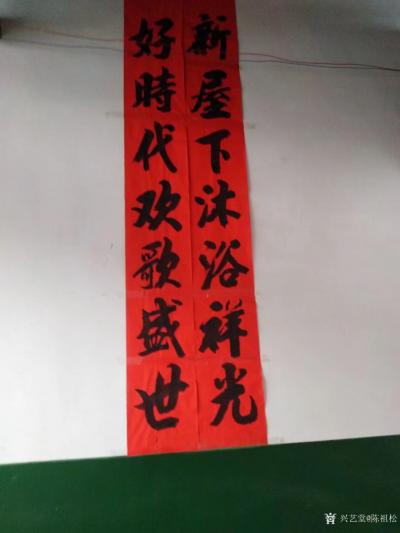 新屋下沐浴祥光
好時代欢歌盛世
兴艺堂@陈祖松